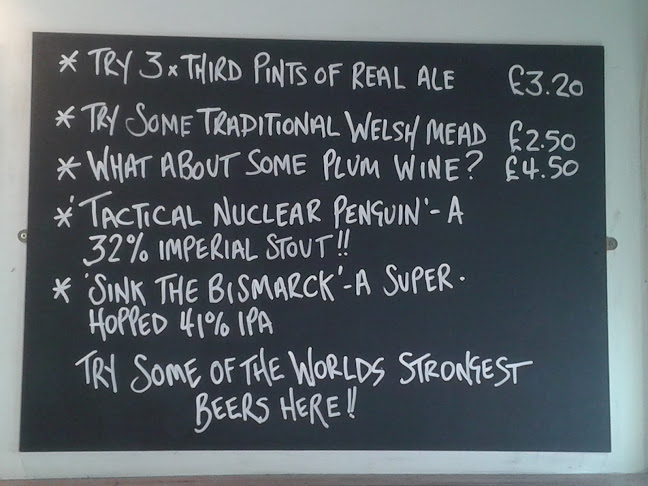 * TRY 3 x THIRD PINTS OF REAL ALE £3.20
* TRY SOME TRADITIONAL WELSH MEAD £2.50
* WHAT ABOUT SOME PLUM WINE? £4.50
* 'TACTICAL NUCLEAR PENGUIN' - A
32% IMPERIAL STOUT!!
* 'SINK THE BISMARCK' - A SUPER-
HOPPED 41% IPA
TRY SOME OF THE WORLDS STRONGEST
BEERS HERE!!